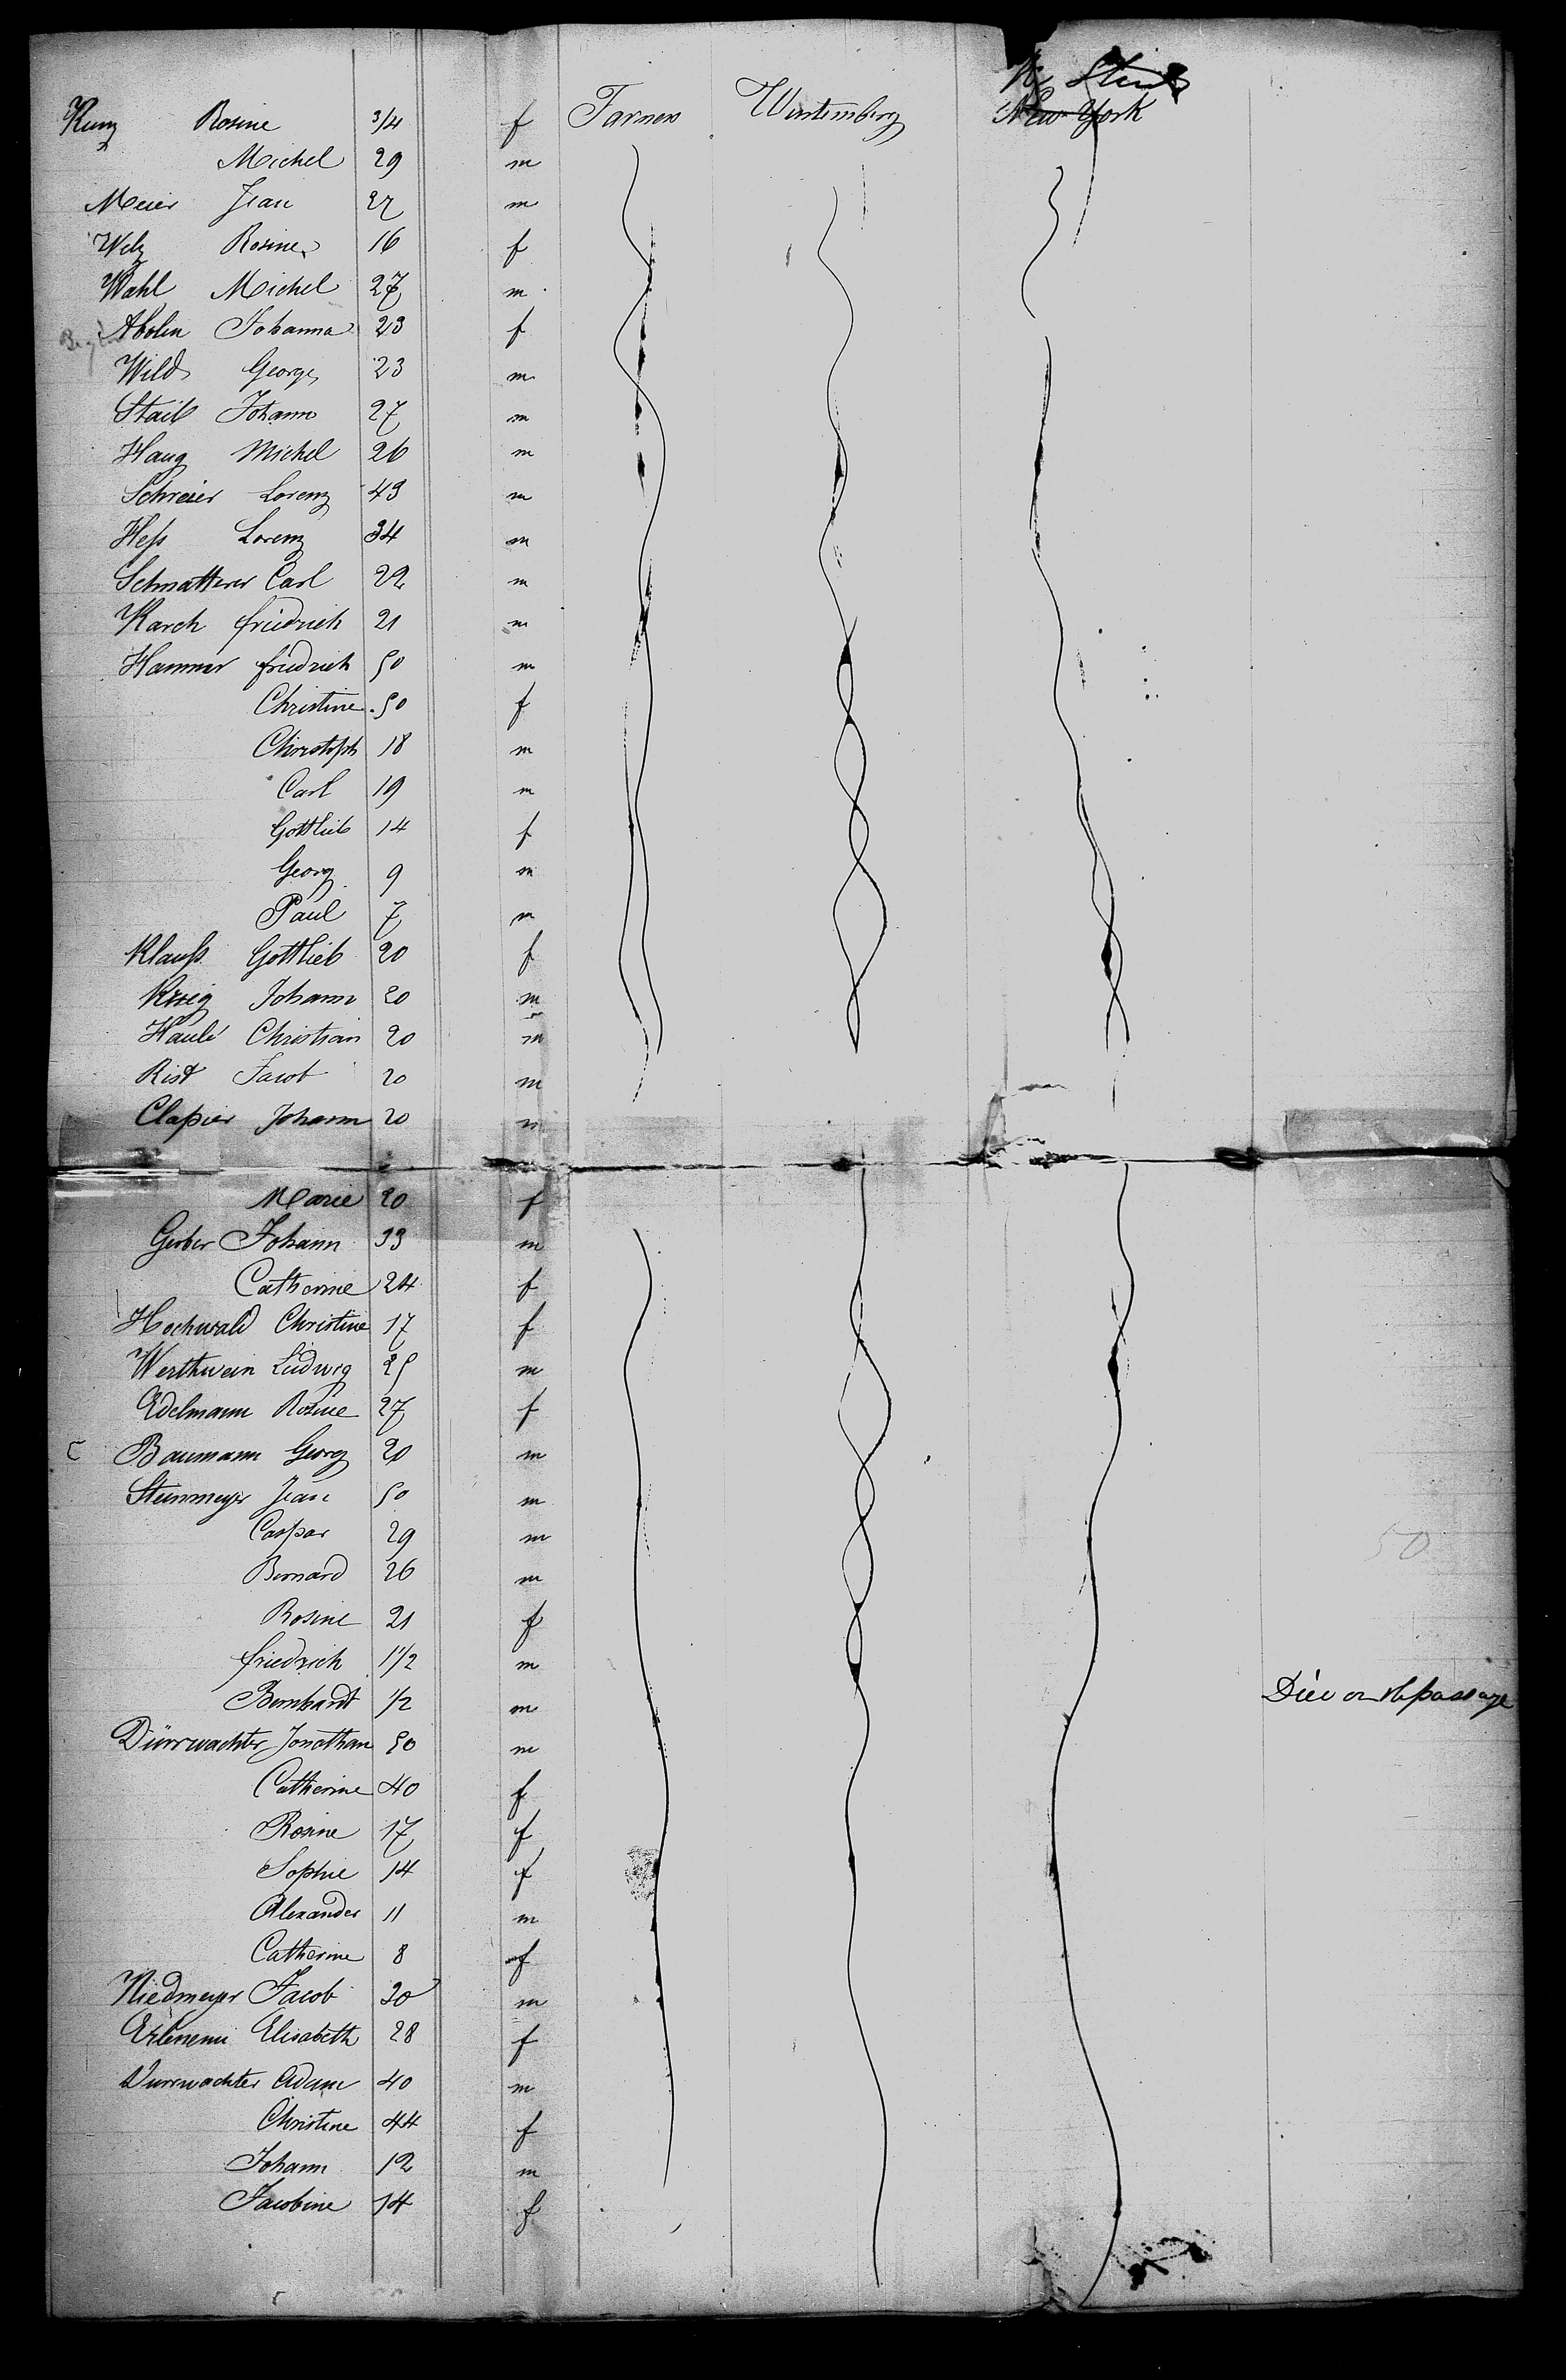 St
Kunz Rosine 3/4 f Farmers Wurtemberg New York
Michel 29 m
Meier Jean 27 m
Welz Rosine 16 f
Wahl Michel 27 m
Johanna 23 f
Wild George 23 m
Staib Johann 27 m
Haug Michel 26 m
Schreier Lorenz 43 m
Heß Lorenz 34 m
Schnatterer Carl 22 m
Karch friedrich 21 m
Hammer friedrich 50 m
Christine 50 f
Christoph 18 m
Carl 19 m
Gottlieb 14 f
Georg 9 m
Paul 7 m
Klauß Gottlieb 20 f
Krieg Johann 20 m
Häulé Christian 20 m
Rist Jacob 20 m
Clapier Johann 20 m
Marie 20 f
Gerber Johann 33 m
Catherine 24 f
Hochwald Christine 17 f
Werthwein Ludwig 25 m
Edelmann Rosine 27 f
Baumann Georg 20 m
Steinmeyer Jean 50 m
Caspar 29 m
Bernard 26 m
50
Rosine 21 f
friedrich 1 1/2 m
Bernhardt 1/2 m Died on the passage
Dürrwachter Jonathan 50 m
Catherine 40 f
Rosine 17 f
Sophie 14 f
Alexander 11 m
Catherine 8 f
Niedmeyer Jacob 20 m
Elisabeth 28 f
Durrwachter Adam 40 m
Christine 44 f
Johann 12 m
Jacobine 14 f